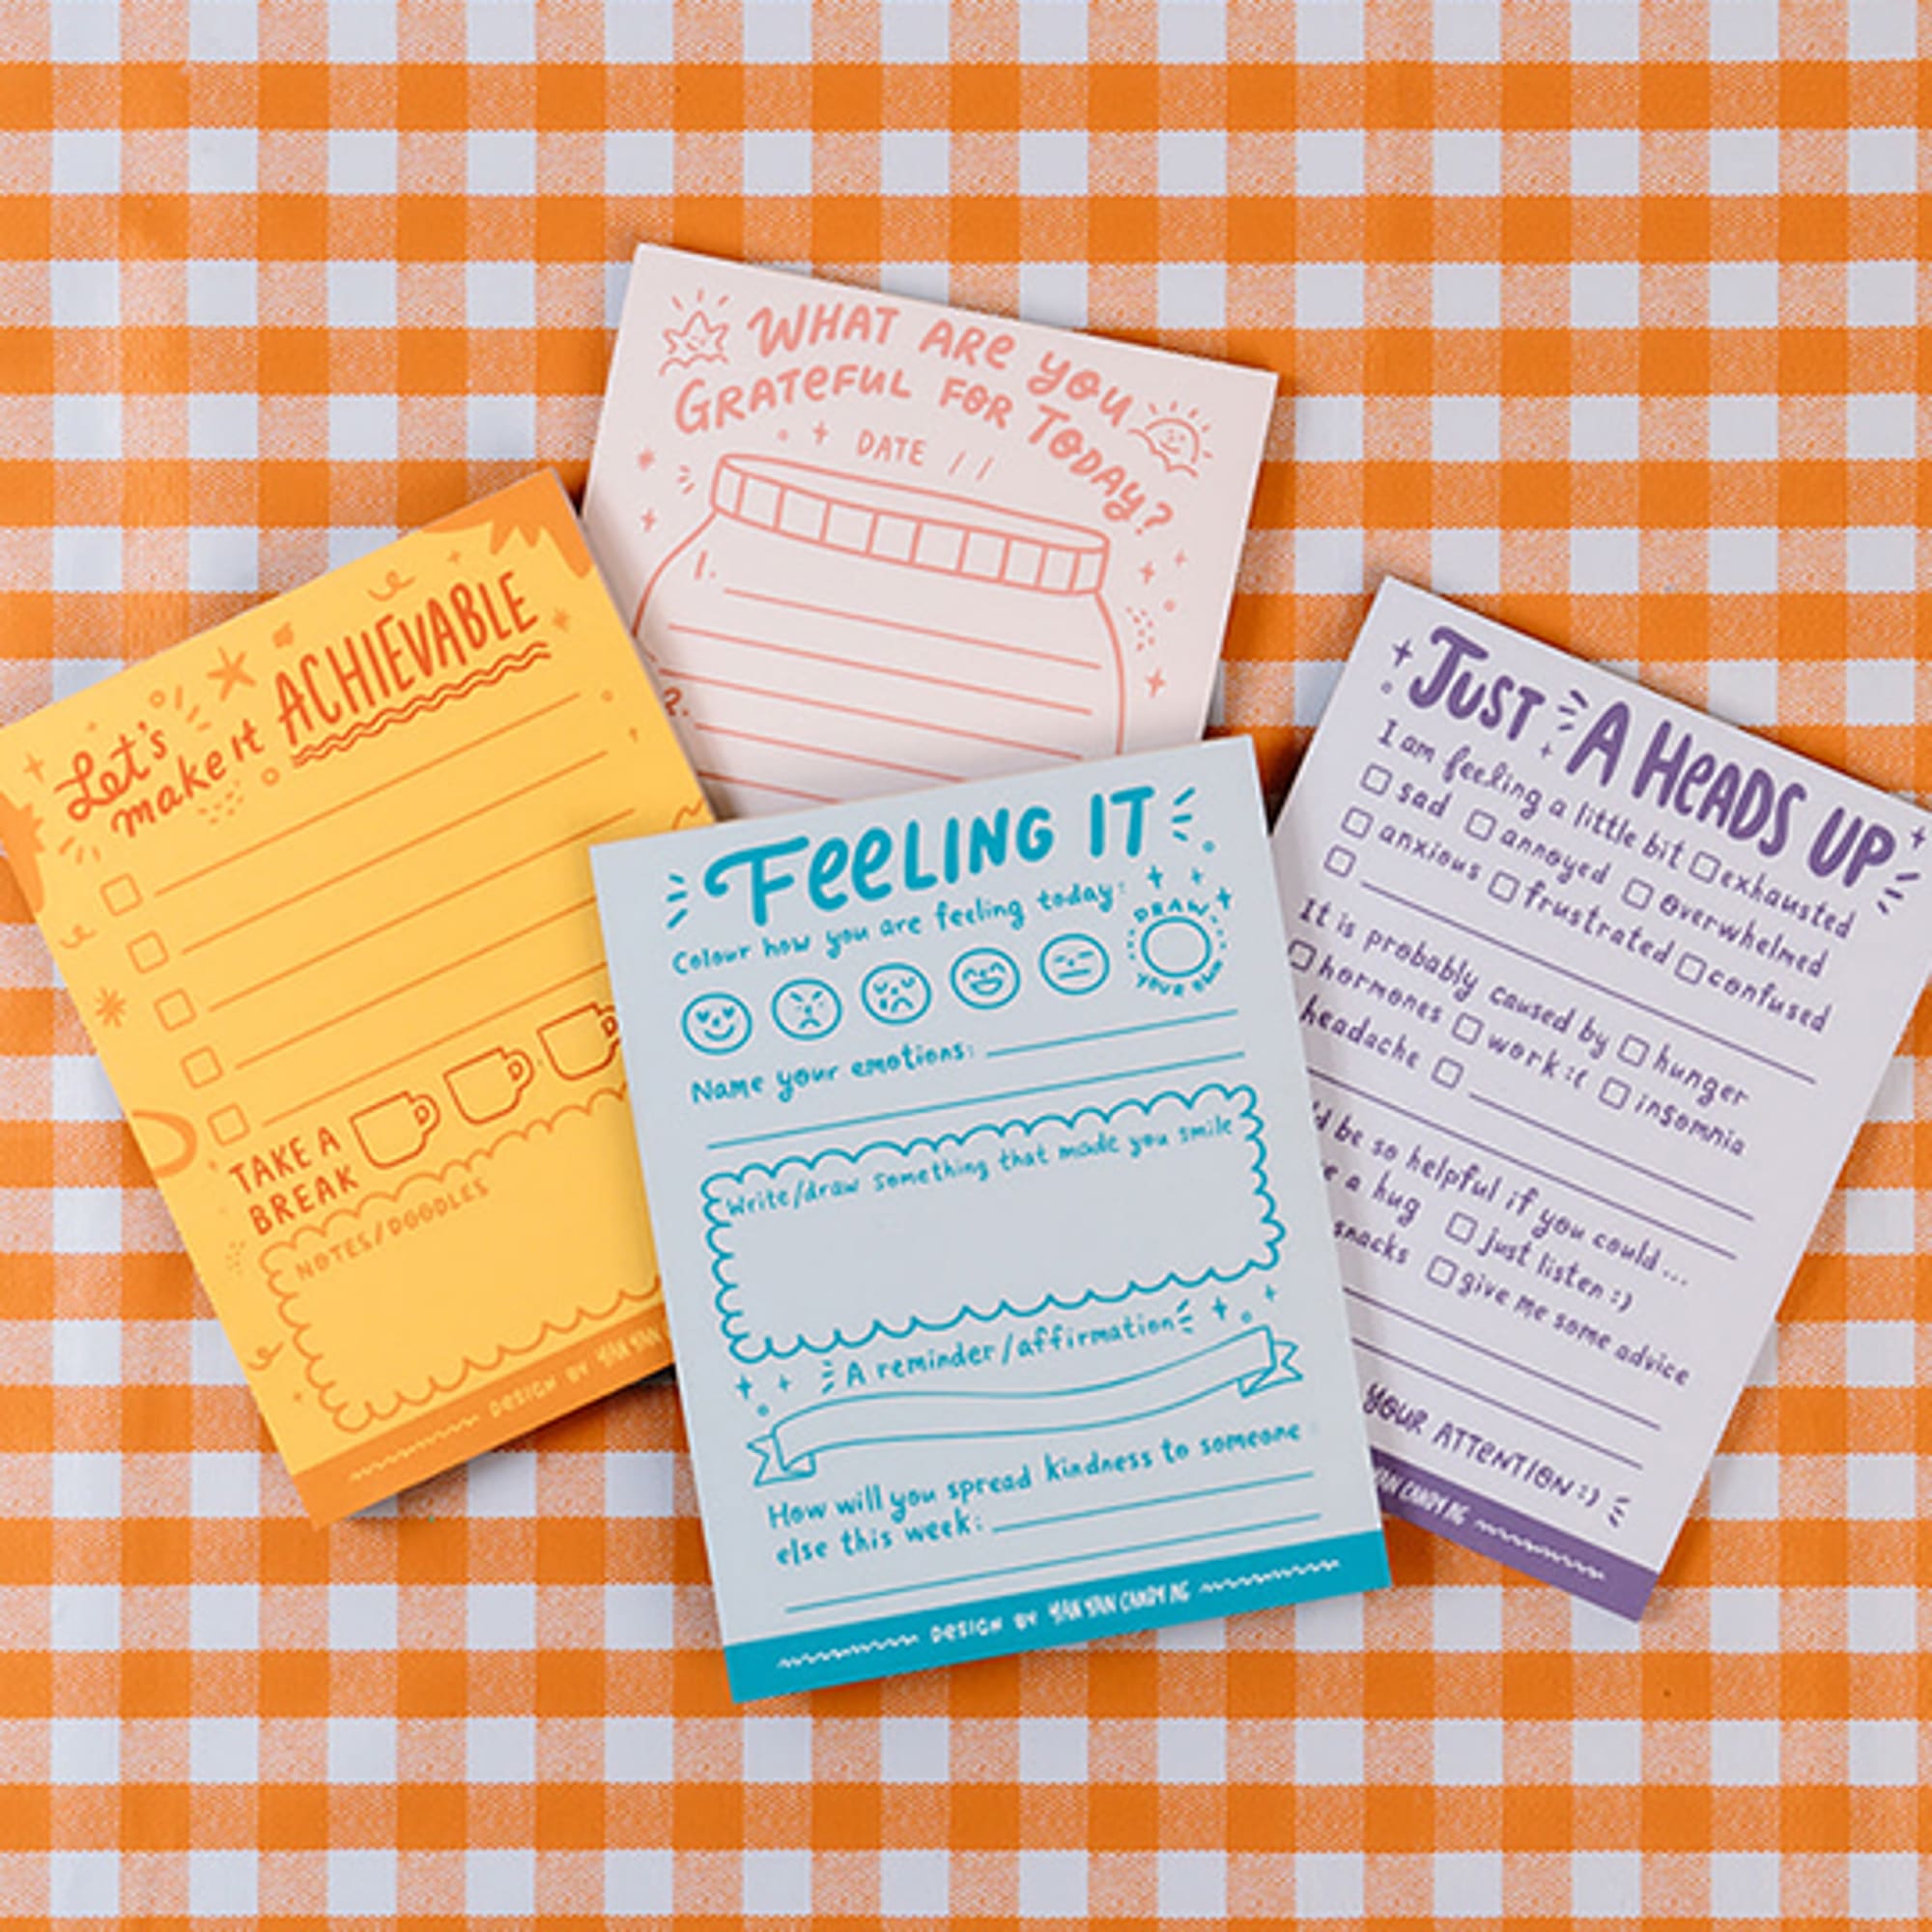 WHAT ARE YOU
GRATEFUL FOR TODAY?
DATE / /
1.
2.
Let's
make it ACHIEVABLE
TAKE A
BREAK
NOTES/DOODLES
DESIGN BY YAN YAN
FEELING IT
Colour how you are feeling today:
DRAW
YOUR OWN
Name your emotions:
Write/draw something that made you smile
A reminder/affirmation
How will you spread kindness to someone
else this week:
DESIGN BY YAN YAN CANDY NG
JUST A HEADS UP
I am feeling a little bit exhausted
sad annoyed overwhelmed
anxious frustrated confused
It is probably caused by hunger
hormones work :( insomnia
headache
be so helpful if you could...
a hug just listen :)
snacks give me some advice
YOUR ATTENTION :)
YAN CANDY NG